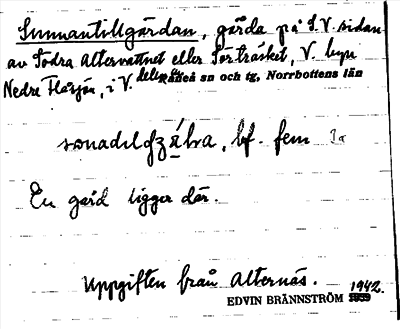 Sunnantillgärdan, gärda på S.V. sidan
av Södra Altervattnet eller Sörträsket, V. byn
Nedre Flarjån, i V. delen av
Piteå sn och tg, Norrbottens län
bf. fem
En gård ligger där.
Uppgiften från Alternäs.
1942.
EDVIN BRÄNNSTRÖM 1939